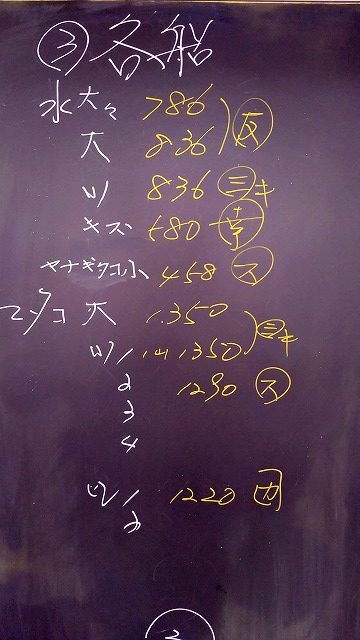 ③各船
水大々 786
大 836 反
小 836 三キ
キズ 580 幸
ヤナギダコ小 458 ス
マダコ 大 1.350
小 1 1.350 三キ
2 1290 ス
3
4
1 1220
2